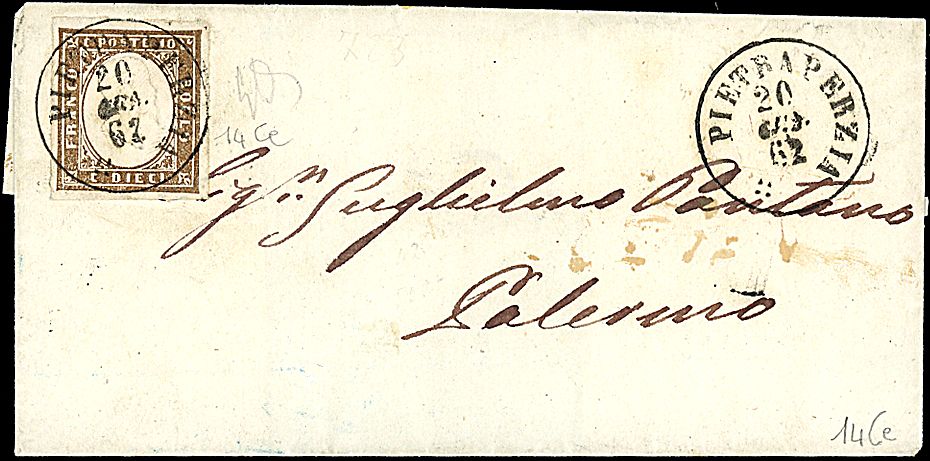 C. POSTE 10
FRANCO
BOLLO
C. DIECI
20
62
PIETRAPERZIA
20
GIU.
62
14Ce
Sig.r Guglielmo Pantano
Palermo
14Ce